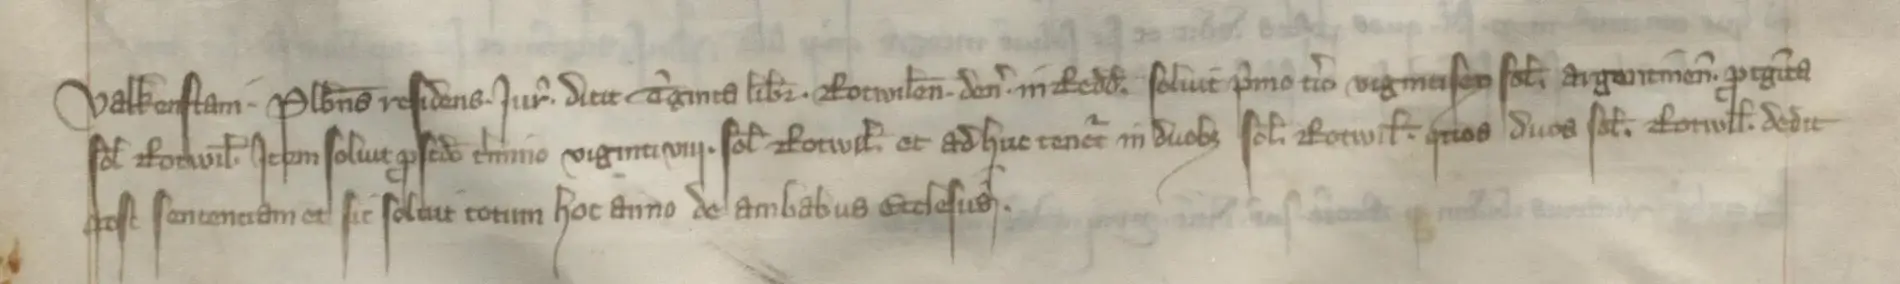 Valkenstain. Plbn̄s residens. Jur̄. dicit tͥginta libr̄. Rotwilen̄. den̄. in redd̄. soluit pͥmo tīo vigintisex sol. argentinen̄. ꝓ tͥginta
sol Rotwil. Item soluit ꝓ sc̄do t̄mino viginti viij. sol Rotwil. et adhuc tenet᷑ in duobꝫ sol. Rotwil. quos duos sol. Rotwil. dedit
post sentenciam et sic soluit totum hoc anno de ambabus ecclesijs.